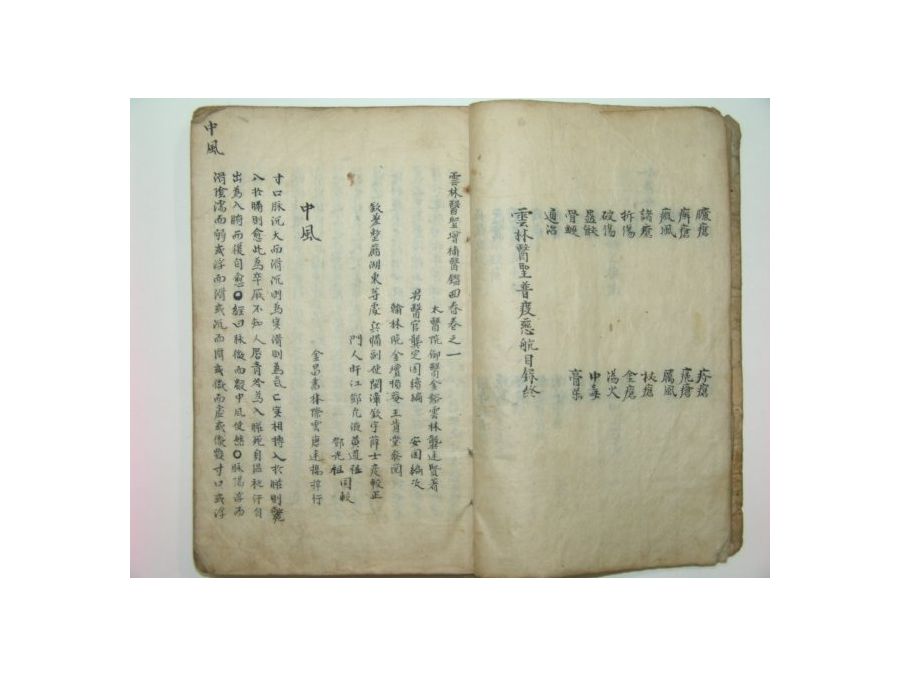 臁瘡 疥瘡
癬瘡 疤瘡
癜風 厲風
諸瘡 杖瘡
折傷 金瘡
破傷 湯火
蟲獸 中毒
骨鯁 膏藥
通治
雲林醫聖普渡慈航目錄終
雲林醫聖增補醫鑑回春卷之一
太醫院御醫金谿雲林龔廷賢著
男醫官龔定國續編 安國編次
翰林院金壇損菴王肯堂參閱
欽差整飭湖東等處兵備副使閩漳欽宇薛士彥較正
門人旴江鄧允淑黃道祖
鄧光祖 同較
金昌書林際雲唐廷揚梓行
中風
寸口脉沉大而滑沉則為實滑則為氣實相摶入於臟則死
入於腑則愈此為卒厥不知人唇青冷為入臟死身溫和汗自
出為入腑而後自愈○經曰脉微而數中風使然○脉陽浮而
滑陰濡而弱或浮而滑或沉而滑或微而虛或微數寸口或浮
中風